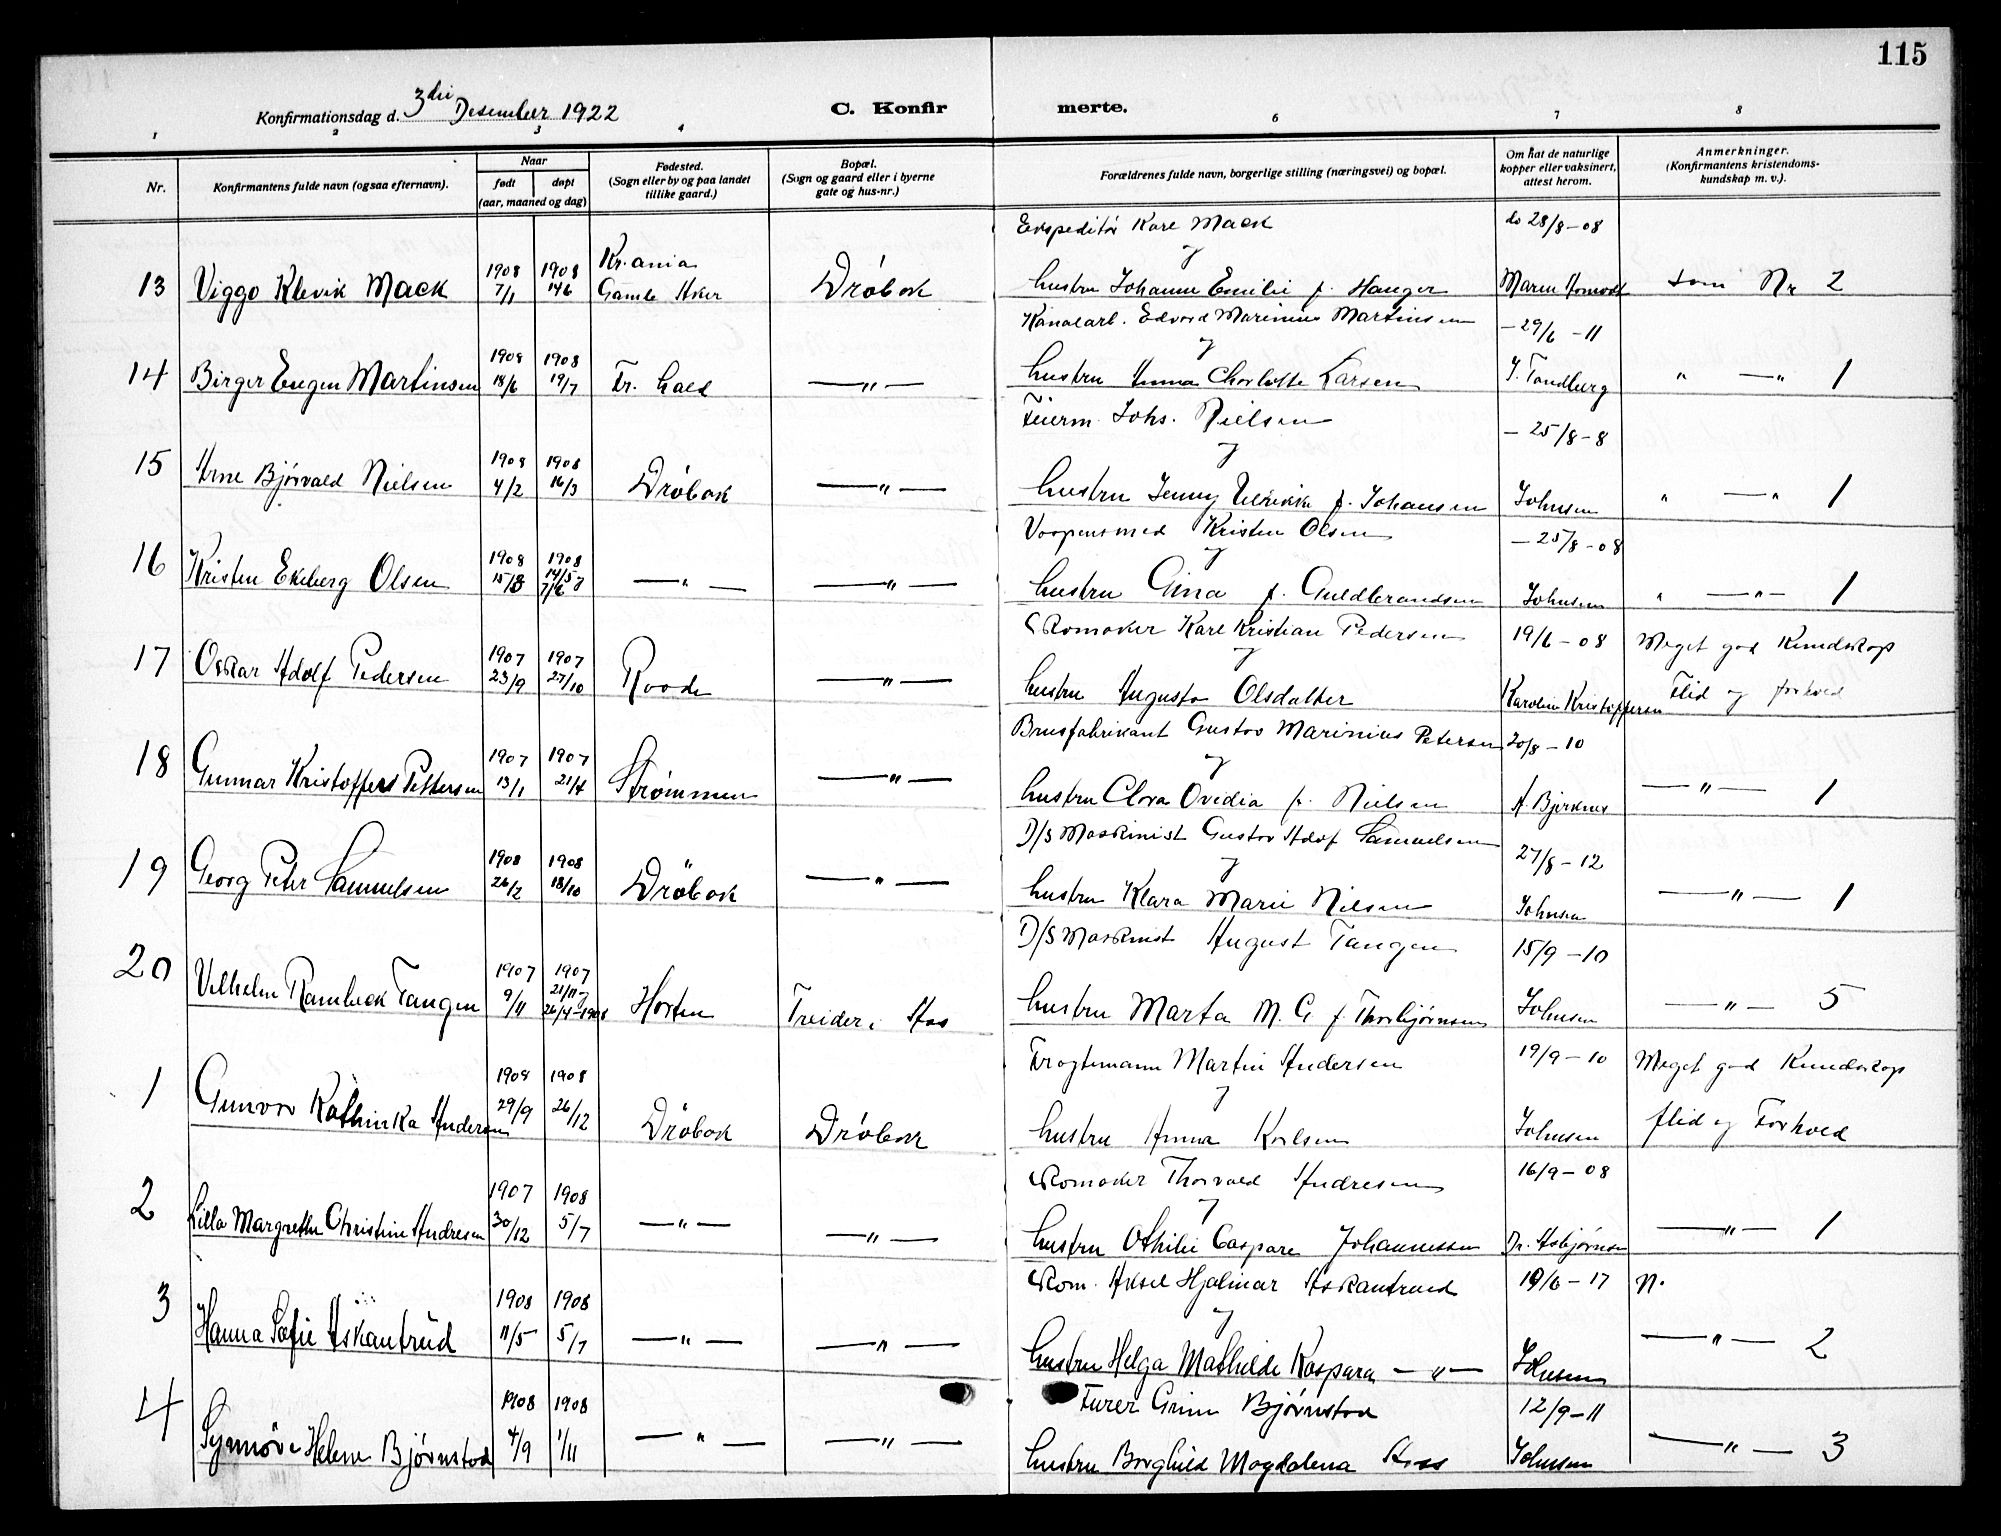 115
Konfirmationsdag d. 3die Desember 1922
C. Konfirmerte.
1 2 3 4 6 7 8
Nr.
Konfirmantens fulde navn (ogsaa efternavn).
Naar
født
døpt
(aar, maaned og dag)
Fødested.
(Sogn eller by og paa landet
tillike gaard.)
Bopæl.
(Sogn og gaard eller i byerne
gate og hus-nr.)
Forældrenes fulde navn, borgerlige stilling (næringsvei) og bopæl.
Om hat de naturlige
kopper eller vaksinert,
attest herom.
Anmerkninger.
(Konfirmantens kristendoms-
kundskap m. v.).
Karl Mack do 28/8-08
og
13 Viggo Klevik Mack 1908 7/1 1908 14/6 Kr.ania Gamle Aker Drøbak hustru Johanne Emilie f. Hanger Maren som Nr 2
Kanalarb. Edvard Marinius Martinsen - 29/6 - 11
og
14 Birger Eugen Martinsen 1908 18/6 1908 19/7 Fr. hald —"— hustru Anna Charlotte Larsen J. Tandberg " —" 1
Feierm. Johs. Nielsen - 25/8-8
og
15 Arne Bjørvald Nielsen 1908 4/2 1908 16/3 Drøbak —"— hustru Jenny f. Johansen Johnsen " —" 1
Kristen Olsen - 25/8-08
og
16 Kristen Ekeberg Olsen 1908 15/3 1908 14/5 7/6 —"— —"— hustru Gina f. Guldbrandsen Johnsen " —"— 1
Skomaker Karl Kristian Pedersen 19/6-08 Meget god Kundskap
og
17 Oskar Adolf Pedersen 1907 23/9 1907 27/10 Raade —"— hustru Augusta Olsdatter Karoline Kristoffersen Flid og forhold
Brusfabrikant Gustav Marinius Petersen 20/8-10
og
18 Gunnar Kristoffers Pettersen 1907 13/1 1907 21/4 Strømmen —"— hustru Clara Ovidia f. Nielsen A. Bjerknes —"— 1
D/S Maskinist Gustav Adof Samuelsen 27/8-12
og
19 Georg Peter Samuelsen 1908 26/2 1908 18/10 Drøbak —"— hustru Klara Marie Nilsen Johnsen —"— 1
D/S Maskinist August Tangen 15/9-10
20 Vilhelm Rambeck Tangen 1907 9/11 1907 21/11 26/4-1908 Horten Treider, Aas hustru Marta M. G f. Thorbjørnsen Johnsen —"— 5
Fragtemann Martin Andersen 19/9-10 Meget god Kundskap
og
1 Gunvor Kathinka Andersen 1908 29/9 1908 26/12 Drøbak Drøbak hustru Anna Karlsen Johnsen flid og Forhold
Skomaker Thorvald Andresen 16/9-08
og
2 Lilla Margrethe Christine Andresen 1907 30/12 1908 5/7 —"— —"— hustru Othilie Caspara Johannessen Dr. Asbjørnsen —"— 1
Skom. Aksel Hjalmar Askautrud 19/6-17 N.
og
3 Hanna Sofie Askautrud 1908 11/5 1908 5/7 —"— —"— hustru Helga Mathilde Kaspara —"— Johnsen —"— 2
Furer Grim Bjørnstad 12/9-11
4 Synnöve Helene Bjørnstad 1908 4/9 1908 1/11 —"— —"— hustru Borghild Magdalena Aass Johnsen —"— 3